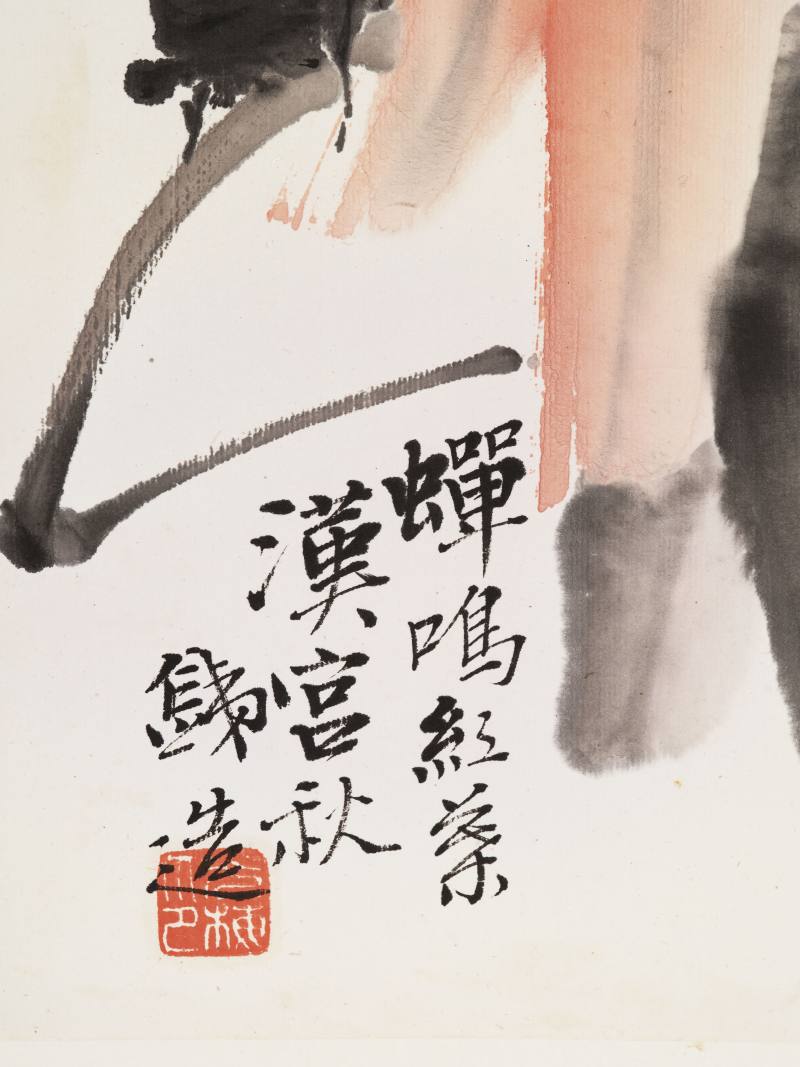 蟬鳴紅葉
漢宮秋
造